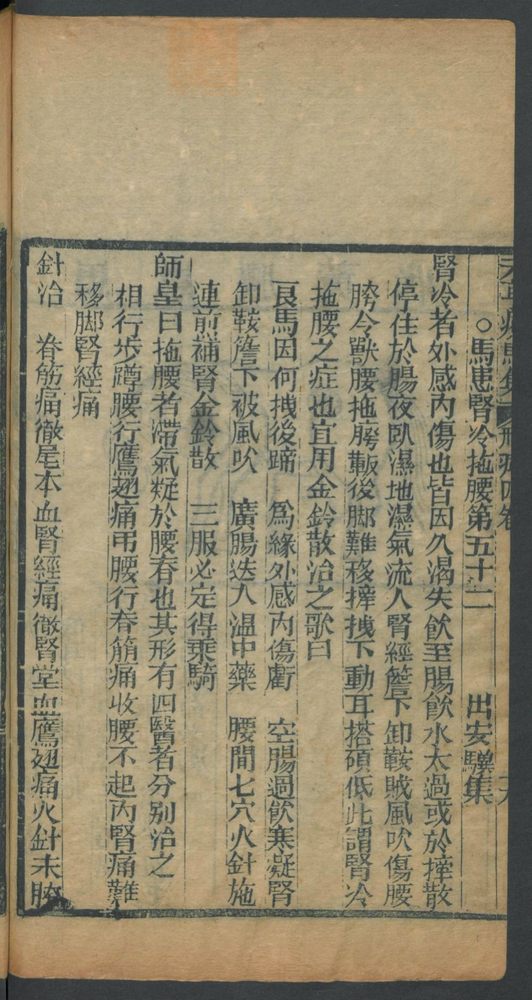 ○馬患腎冷拖腰第五十二 出安驥集
腎冷者外感內傷也皆因久渴失飲至腸飲水太過或於摔散
停住於腸夜臥濕地濕氣流入腎經簷下卸鞍賊風吹傷腰
胯令獸腰拖胯䩕後脚難移摔拽下動耳搭頭低此謂腎冷
拖腰之症也宜用金鈴散治之歌曰
良馬因何拽後蹄 為緣外感內傷虧 空腸過飲寒凝腎
卸鞍簷下被風吹 廣腸送入溫中藥 腰間七穴火針施
連煎補腎金鈴散 三服必定得乘騎
師皇曰拖腰者滯氣凝於腰脊也其形有四醫者分別治之
相行步蹲腰行鴈翅痛弔腰行脊筋痛收腰不起內腎痛難
移脚腎經痛
針治 脊筋痛徹尾本血腎經痛徹腎堂血鴈翅痛火針未